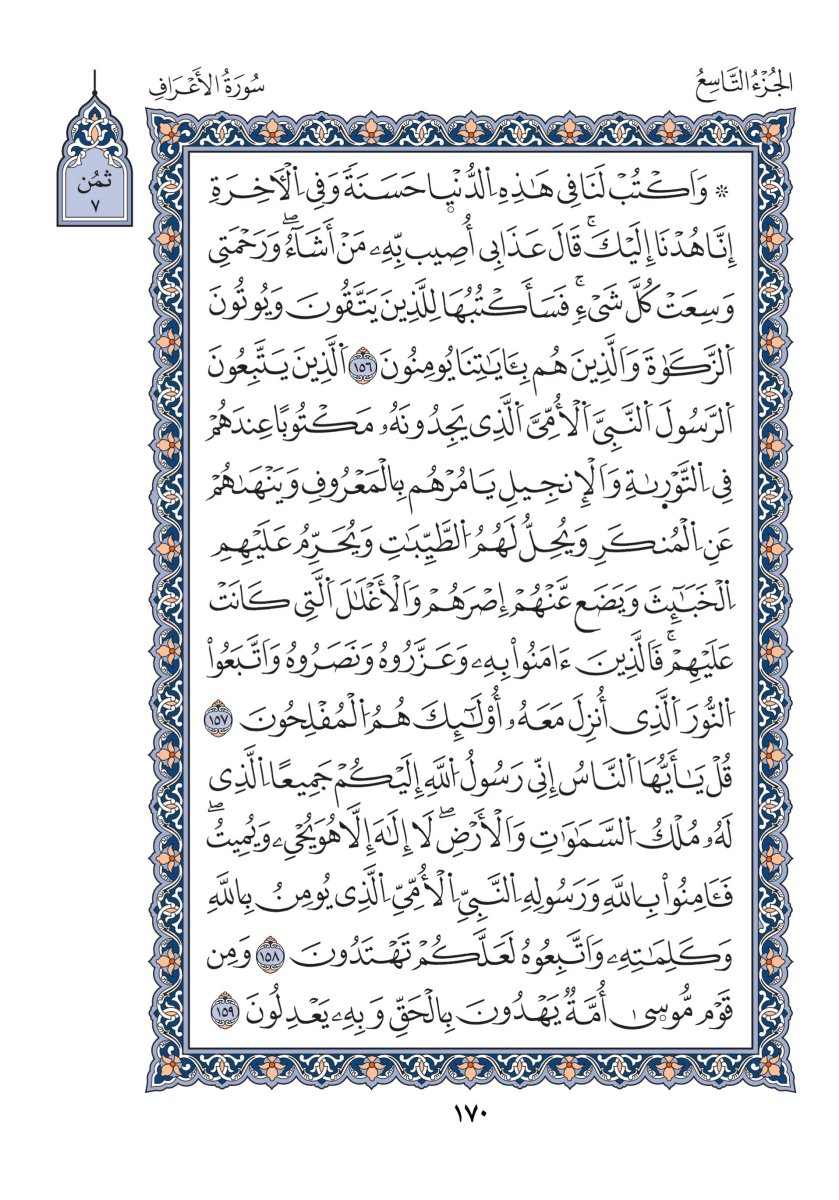 الجُزْءُ التَّاسِعُ
سُورَةُ الأَعْرَافِ
ثمُن
٧
۞ وَاَكْتُبْ لَنَا فِي هَٰذِهِ اِلدُّنْيٜا حَسَنَةٗ وَفِي اِلْأَخِرَةِ
إِنَّا هُدْنَا إِلَيْكَۚ قَالَ عَذَابِي أُصِيب بِّهِۦ مَنْ أَشَآءُۖ وَرَحْمَتِي
وَسِعَتْ كُلَّ شَيْءٖۚ فَسَأَكْتُبُهَا لِلَّذِينَ يَتَّقُونَ وَيُوتُونَ
اَلزَّكَوٰةَ وَالَّذِينَ هُم بِـَٔايَٰتِنَا يُومِنُونَ ١٥٦ اَلَّذِينَ يَتَّبِعُونَ
اَلرَّسُولَ اَلنَّبِيَّ اَلْأُمِّيَّ اَلَّذِي يَجِدُونَهُۥ مَكْتُوبًا عِندَهُمْ
فِي اِلتَّوْرٜىٰةِ وَالْإِنجِيلِ يَامُرْهُم بِالْمَعْرُوفِ وَيَنْهَىٰهُمْ
عَنِ اِلْمُنكَرِ وَيُحِلُّ لَهُمُ اُلطَّيِّبَٰتِ وَيُحَرِّمُ عَلَيْهِمِ
اِلْخَبَٰٓئِثَ وَيَضَع عَّنْهُمْ إِصْرَهُمْ وَالْأَغْلَٰلَ اَلَّتِي كَانَتْ
عَلَيْهِمْۚ فَالَّذِينَ ءَامَنُواْ بِهِۦ وَعَزَّرُوهُ وَنَصَرُوهُ وَاتَّبَعُواْ
اُلنُّورَ اَلَّذِي أُنزِلَ مَعَهُۥ أُوْلَٰٓئِكَ هُمُ اُلْمُفْلِحُونَ ١٥٧
قُلْ يَٰأَيُّهَا اَلنَّاسُ إِنِّي رَسُولُ اُللَّهِ إِلَيْكُمْ جَمِيعًا اِلَّذِي
لَهُۥ مُلْكُ اُلسَّمَٰوَٰتِ وَالْأَرْضِۖ لَا إِلَٰهَ إِلَّا هُوَ يُحْيِۦ وَيُمِيتُۖ
فَـَٔامِنُواْ بِاللَّهِ وَرَسُولِهِ اِلنَّبِيِّ اِلْأُمِّيِّ اِلَّذِي يُومِنُ بِاللَّهِ
وَكَلِمَٰتِهِۦ وَاتَّبِعُوهُ لَعَلَّكُمْ تَهْتَدُونَ ١٥٨ وَمِن
قَوْم مُّوسٜىٰ أُمَّةٞ يَهْدُونَ بِالْحَقِّ وَبِهِۦ يَعْدِلُونَ ١٥٩
١٧٠